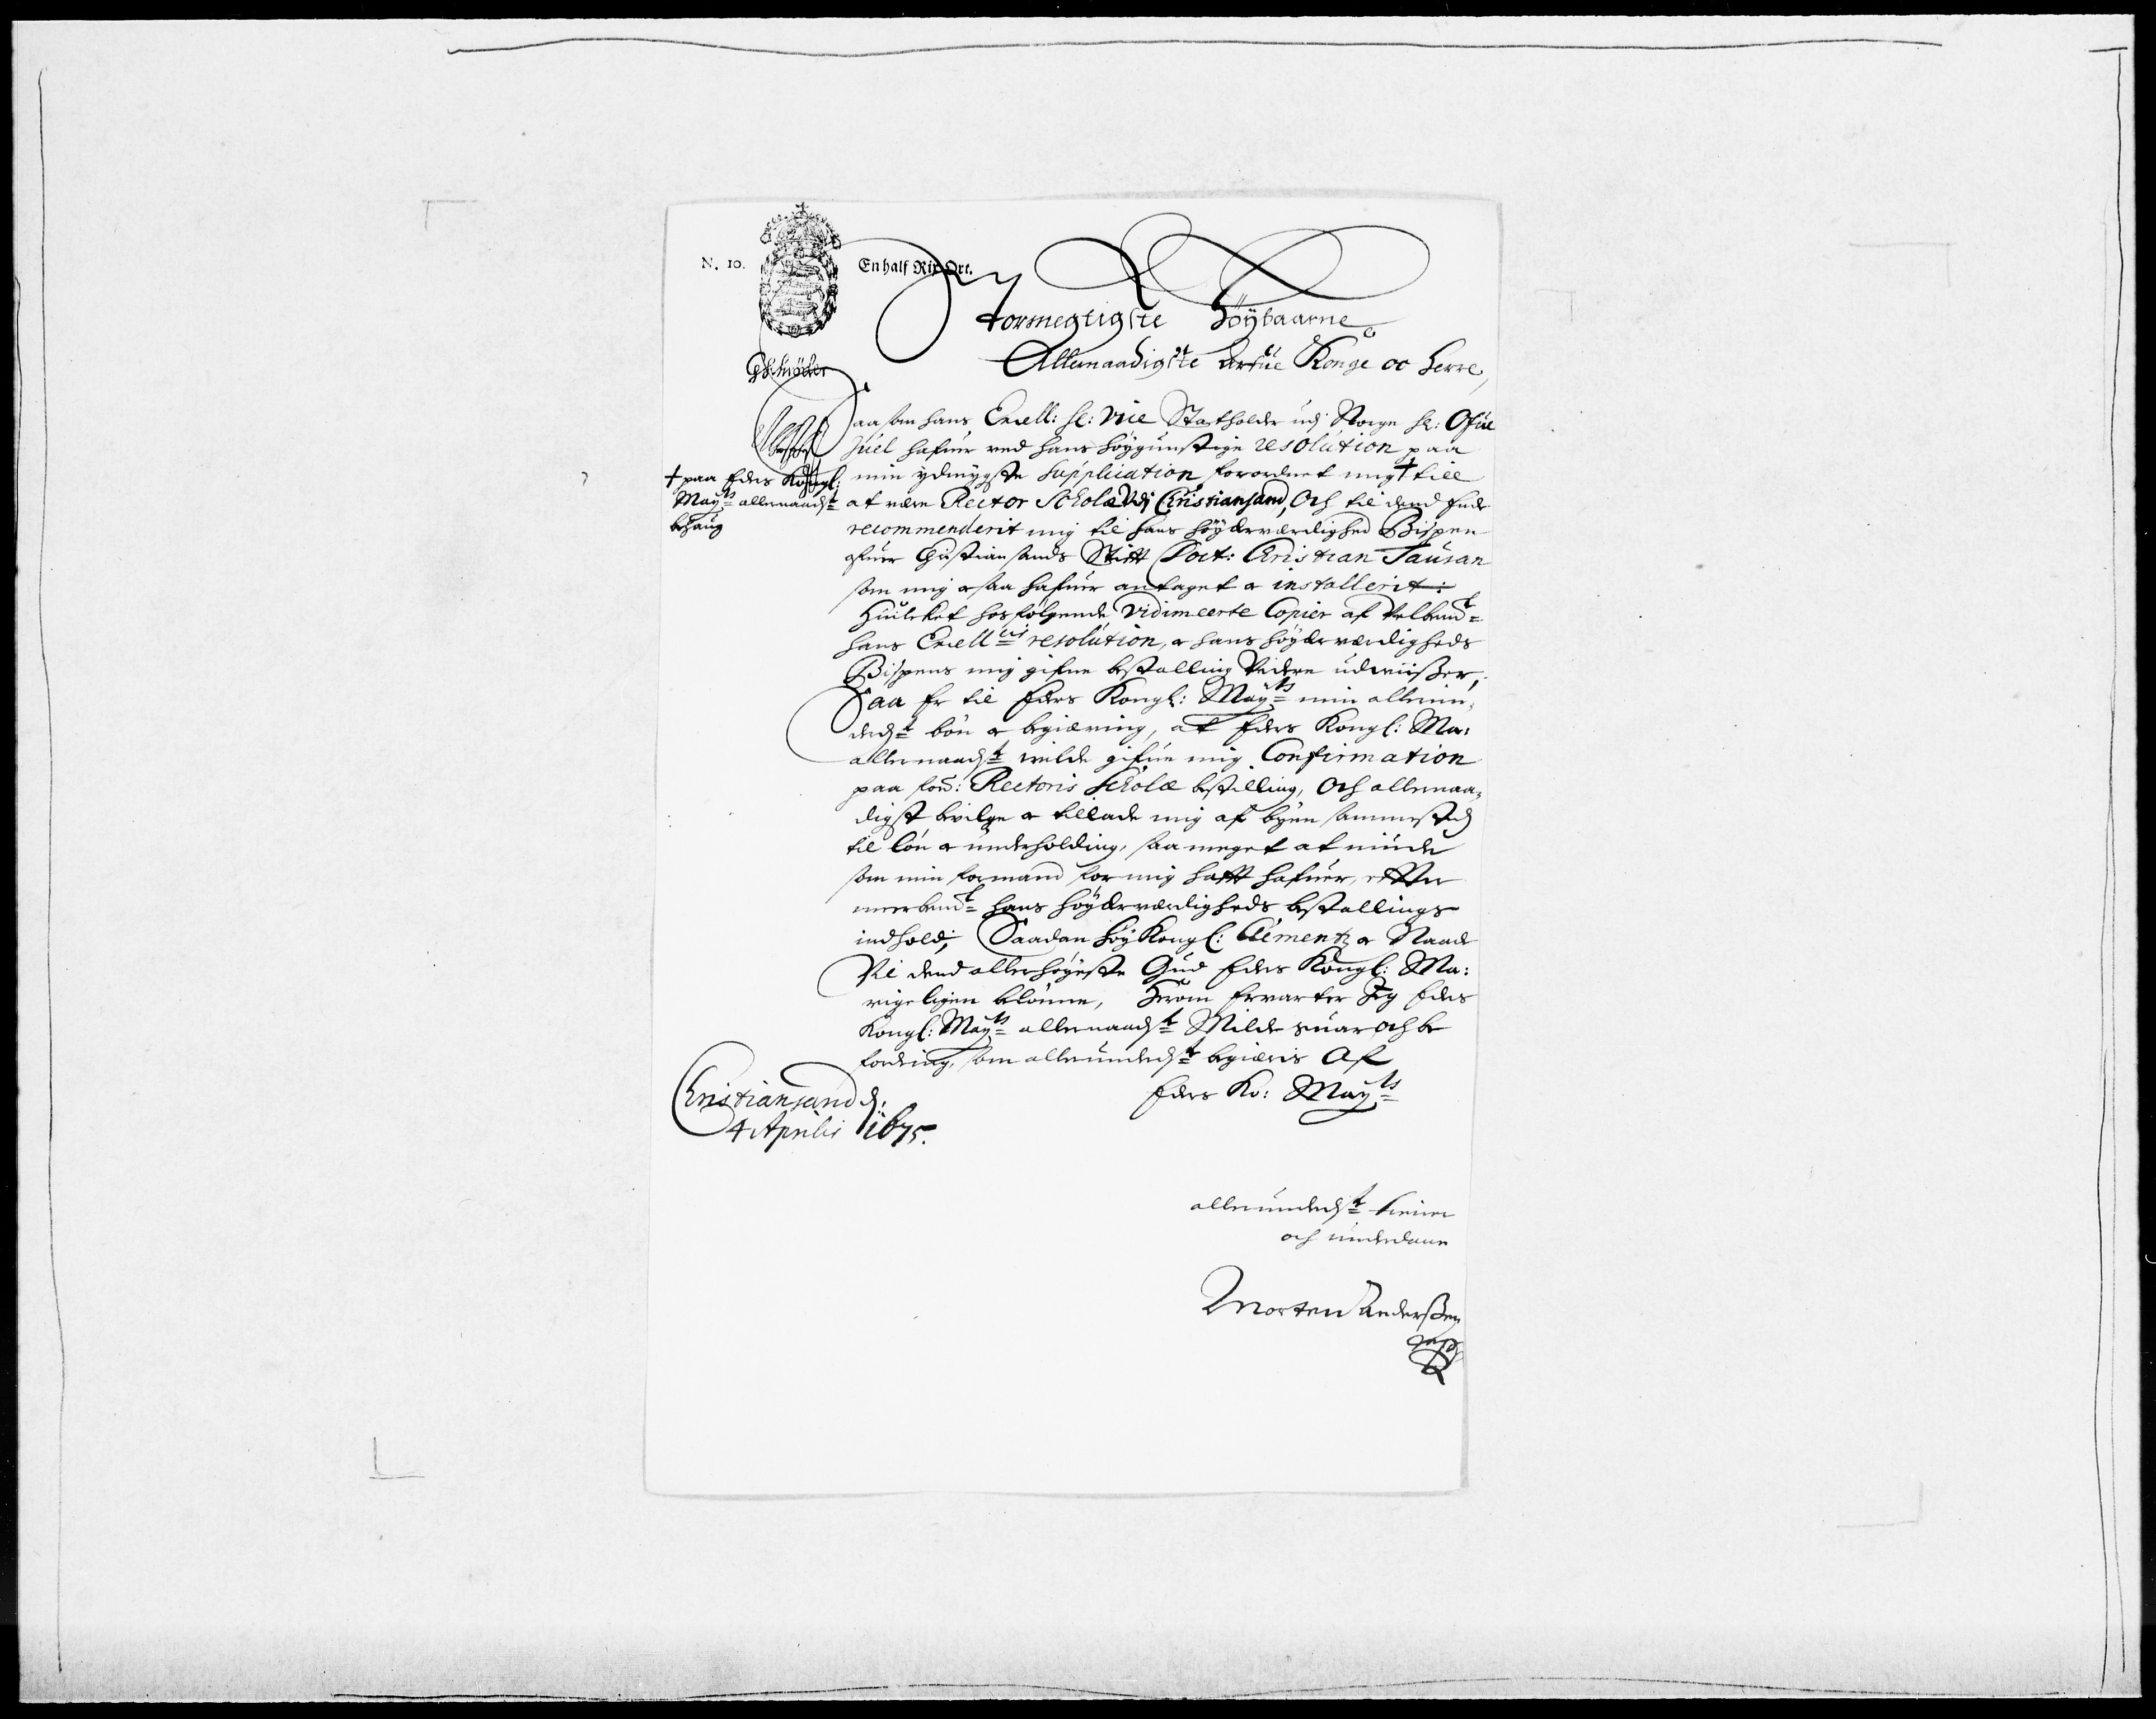 N. 10.
En half Rix Ort.
Stormegtigste Höybaarne
Allernaadigste Arfue Konge oc Herre,
Saasom hans Excell: hr: Vice Statholder udj Norge hr: Ofue
Juel hafuer ved hans höygunstige resolution paa
min ydmygste Supplication forordnet mig † till
† paa Eders Kongl:
Mayts allernaadst
behaug
at være Rector Scholæ Udj Christiansand, Och til dend Ende
recommenderit mig til hans höyærværdighed Bispen
ofuer Christiansands Stifft Doct: Christian Tausan
som mig ogsaa hafuer antaget oc installerit:
Huilcket hosfölgende Vidimeerte Copier af velbemt
hans Excellcis resolution, oc hans höyærværdigheds
Bispens mig gifne bestalling videre udwiißer,
Saa Er til Eders Kongl: Mayts min allerun,
dedst bön oc begiæring, at Eders Kongl: Ma:
allernaadst wilde gifue mig Confirmation
paa forn: Rectoris Scholæ bestilling, Och allernaa,
digst bevilge oc tillade mig af byen sammested
til lön oc underholding, saa meget at niude
som min formand for mig hafft hafuer, effter
meerbemt hans höyærværdigheds bestallings
indhold; Saadan höy Kongl: Clementz oc Naade
Vil dend allerhöyeste Gud Eders Kongl: Ma:
rigeligen belönne, Herom Ervarter Jeg Eders
Kongl: Mayts allernaadst Milde suar och be
fordring, som allerundedst begiæris Af
Eders Ko: Mayts
Christiansand d:
4 Aprilis 1675.
allerundedst tiener
och underdane
Morten Anderßen